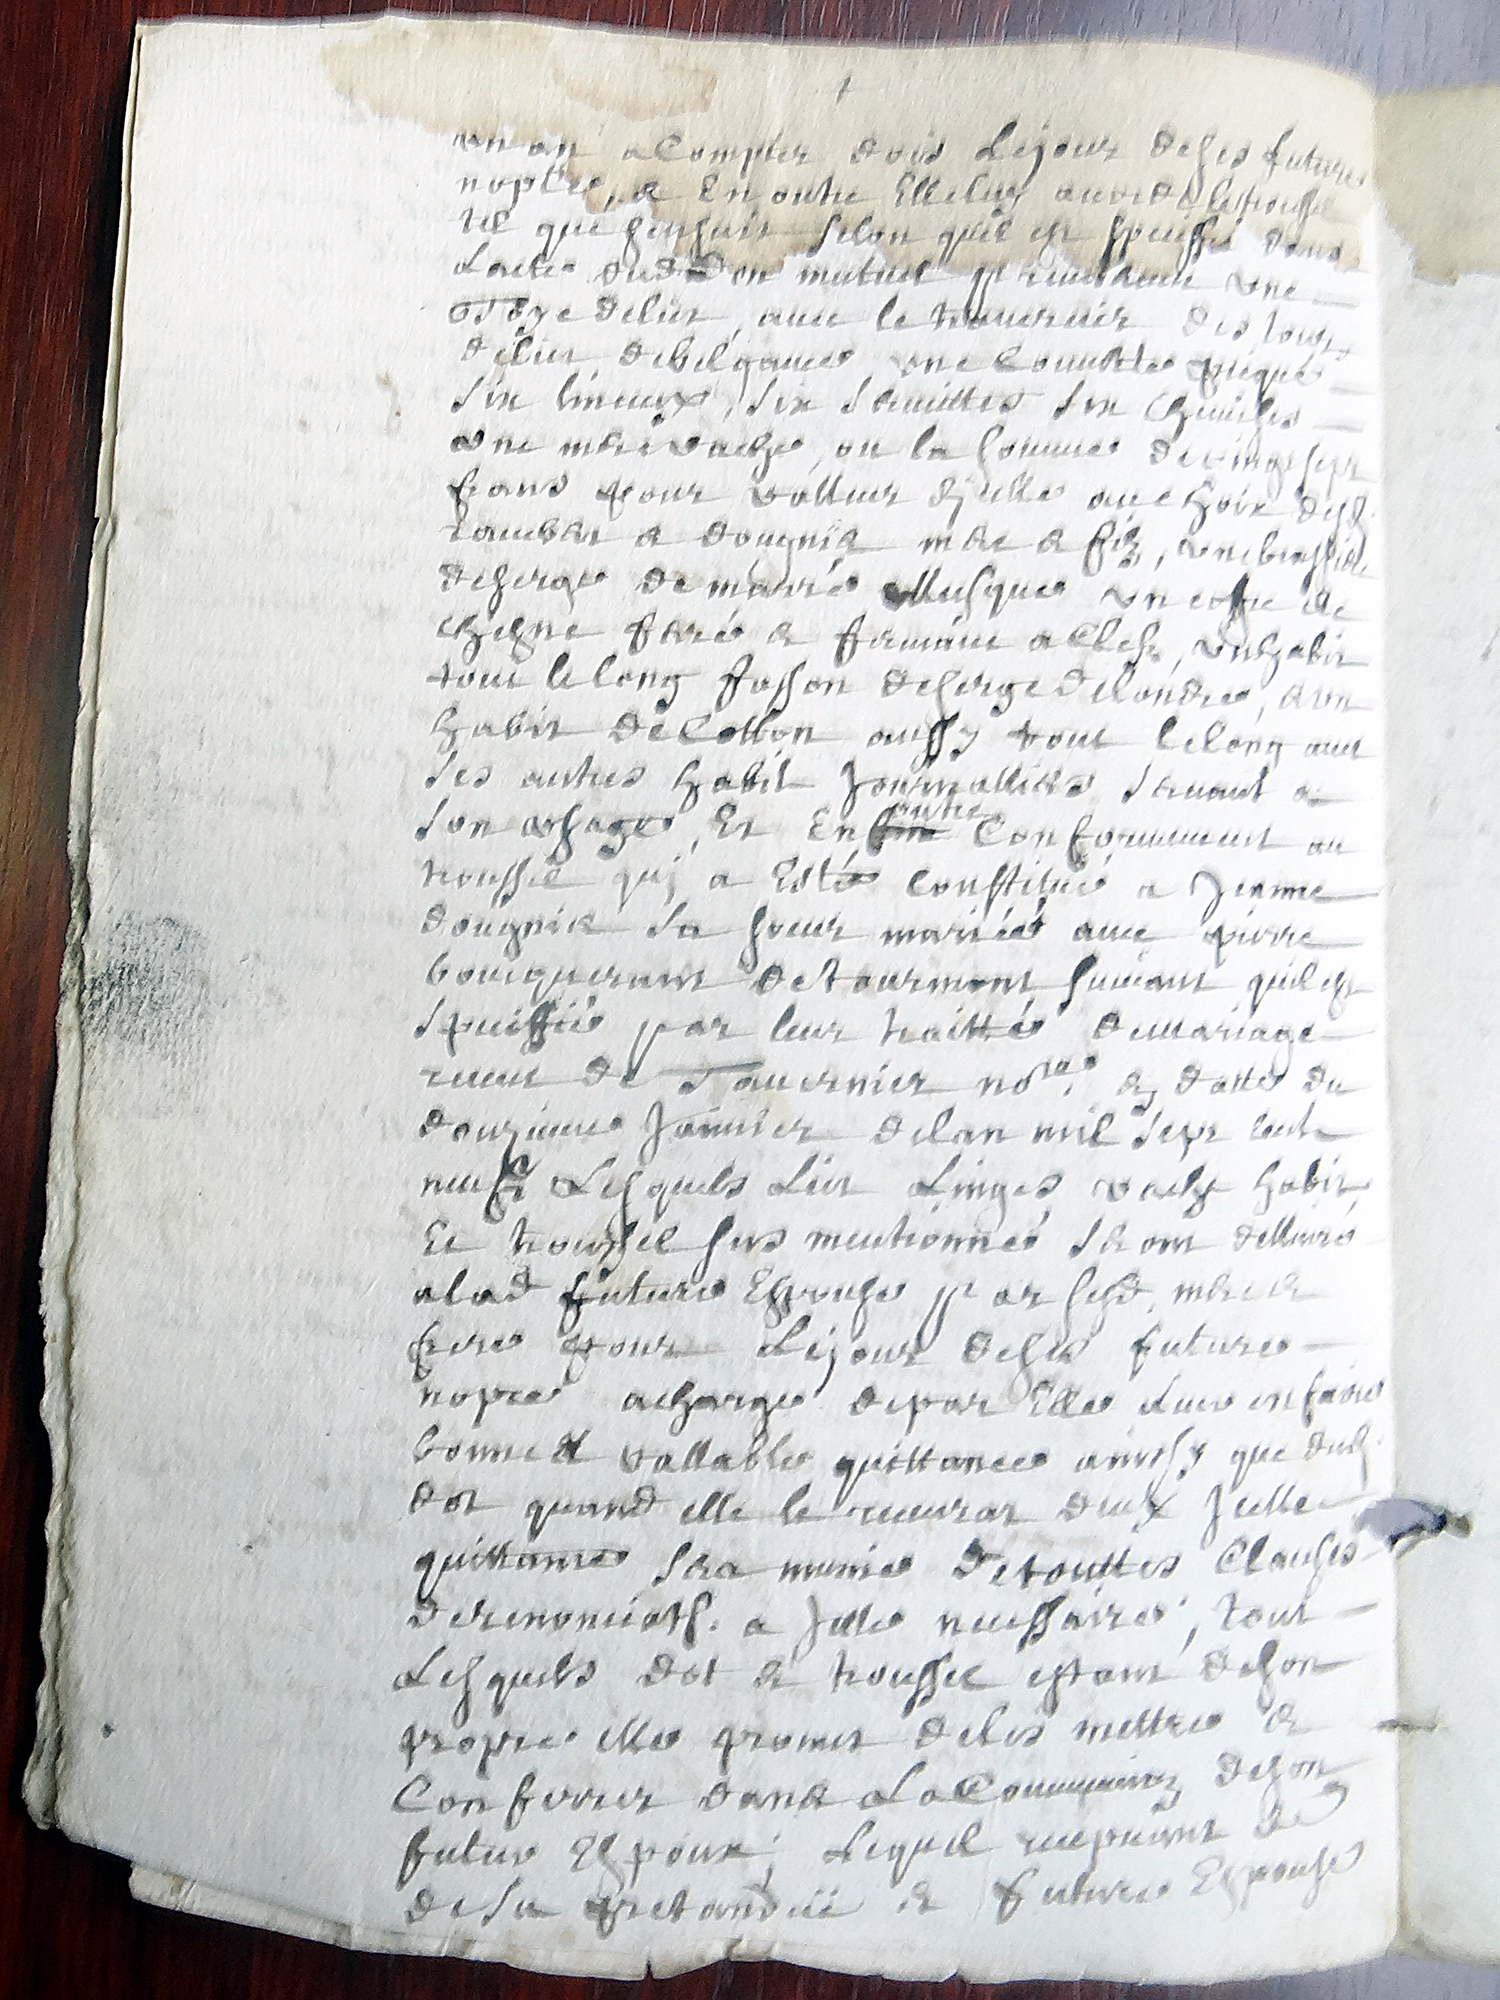 un an a Compter dois Lejour deses future
noptes, & En outre Elle luy aura de le troussel
tel que sensuit selon quil est speciffié dans
Lacte dud Don mutuel
une
de lict, auec le des tours
delict une Couuerte piqué
six linceux, six seruiettes six chemises
une mere vache, ou la somme de vingt sept
frans pour valleur dycelle au choix desd.
& dougnier mere & filz, une
deserge de un cofre de
chesne feré & fermant a Clefz, un habit
tout le long fasson deserge delondre, & un
habit de Cotton aussy tout lelong auec
ses autres habit Journalliers seruant a
son usage, Et En outre Conformement au
troussel quj a Esté constitué a Jeanne
dougnier sa soeur mariéé auec pierre
de tourmont suiuant quil est
speciffié par leur traitté de mariage
receu de Tauernier nore. en datte du
douzieme Januier de lan mil sept cent
neufz Lesquels Lict Linges vache habit
Et troussel sus mentionnés seront delliuré
a lad future Espouse par sesd. mere &
frere pour Lejour deses future
nopces acharge depar Elle Leur en faire
bonne & vallable quittance ainsy que dud.
dot quand elle le receurat deux Jcelle
quittance sera munie de touttes Clauses
de renonciatz. a Jcelle necessaire, tout
Lesquels dot & troussel estant deson
propre elle promet deles mettre &
Conferer dans La Communiez deson
futur Espoux; Lequel receuant de
de sa pretanduë & future Espouse